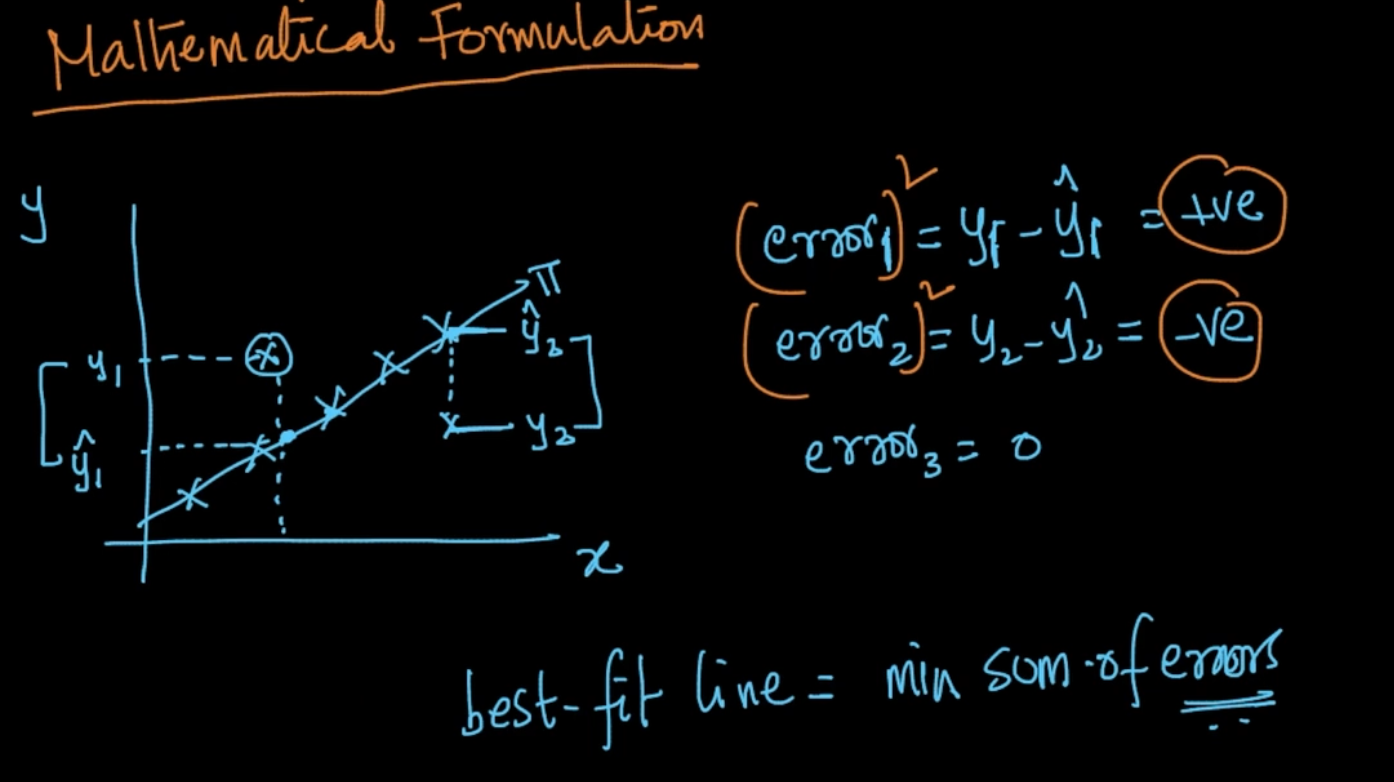 Mathematical Formulation
y
π
ŷ₂
y₁
y₂
ŷ₁
x
(error₁)² = y₁ - ŷ₁ = +ve
(error₂)² = y₂ - ŷ₂ = -ve
error₃ = 0
best-fit line = min sum of errors